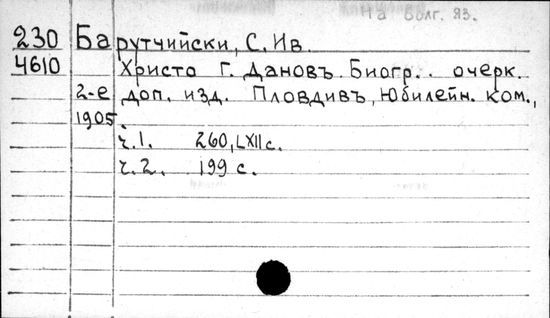 На болг. яз.
230 Барутчийски, С. Ив.
4610 Христо Г. Дановъ. Биогр.. очерк.
2-е доп. изд. Пловдивъ, Юбилейн. ком.,
1905.
ч.1. 260, LXII с.
ч.2. 199 с.